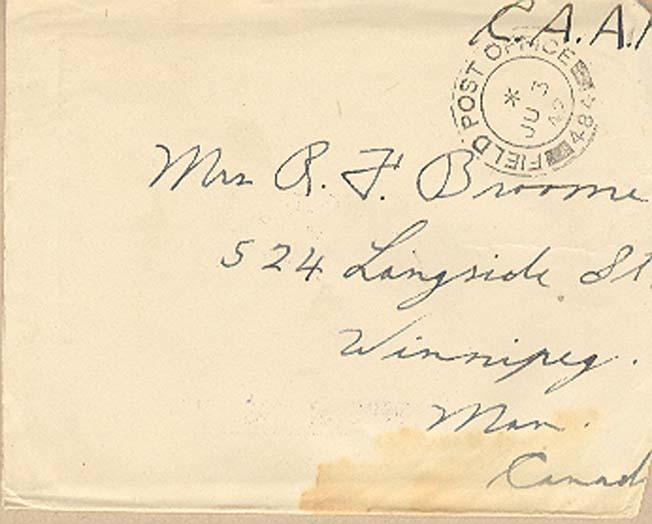 C.A.A.
FIELD POST OFFICE 484
*
JU 3
Mrs R. F. Broome
524 Langside St.
Winnipeg.
Man.
Canad